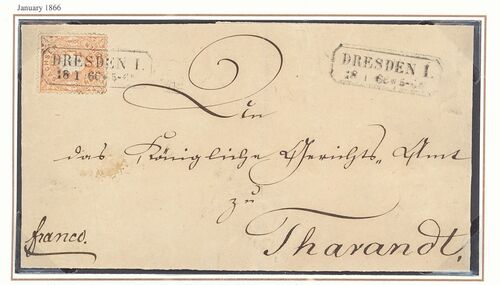 January 1866
DRESDEN I.
18 1 66
DRESDEN I.
18 1 66
An
das Königliche Gerichts-Amt
zu
franco.
Tharandt.